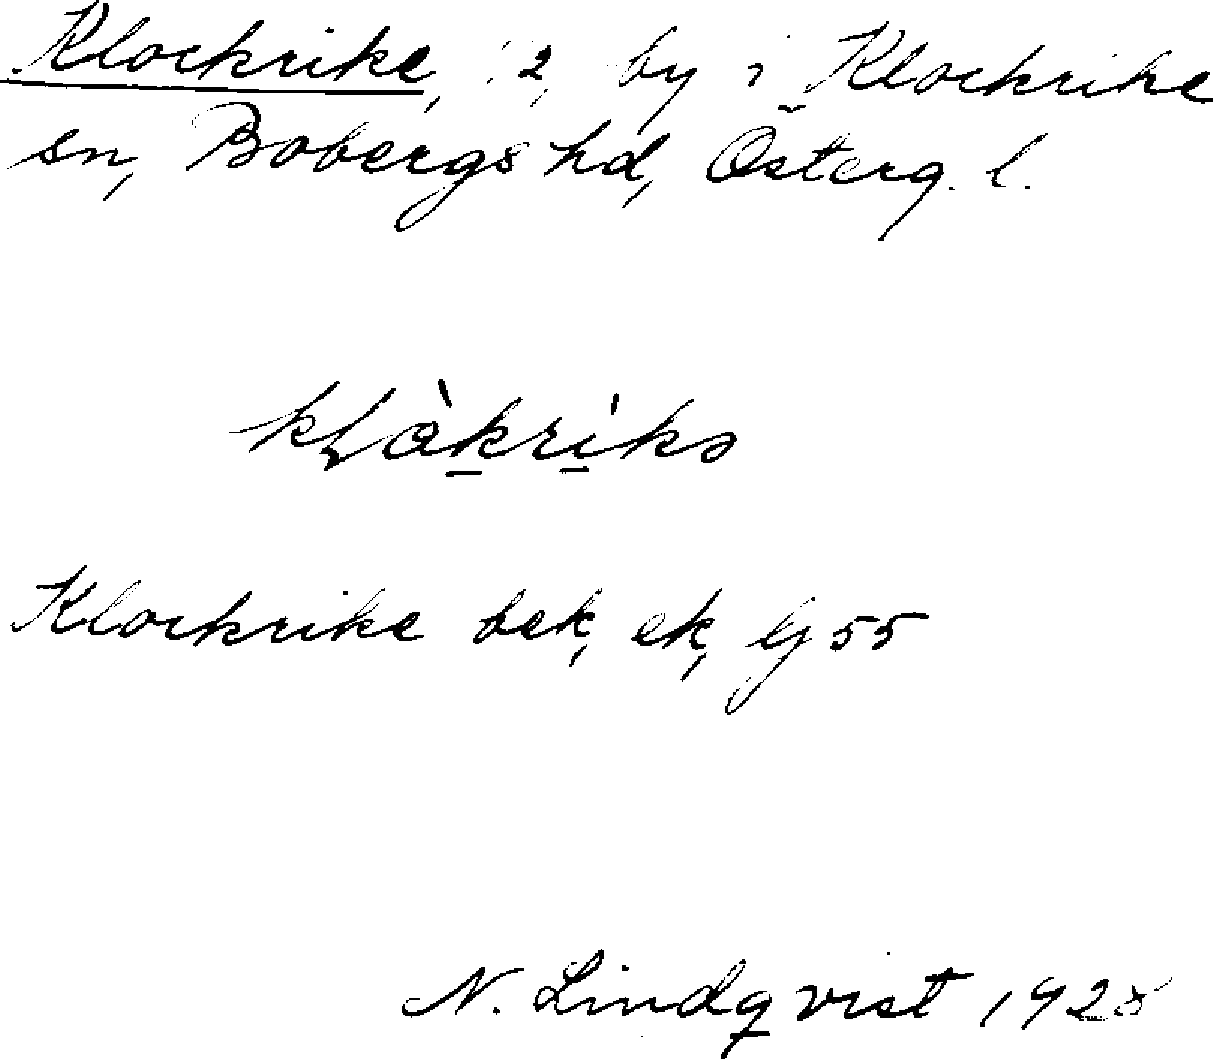 Klockrike, 12, by i Klockrike
sn, Bobergs hd, Österg. l.
kḷàkrìkə
Klockrike bek, ek, Gj 55
N. Lindqvist 1928